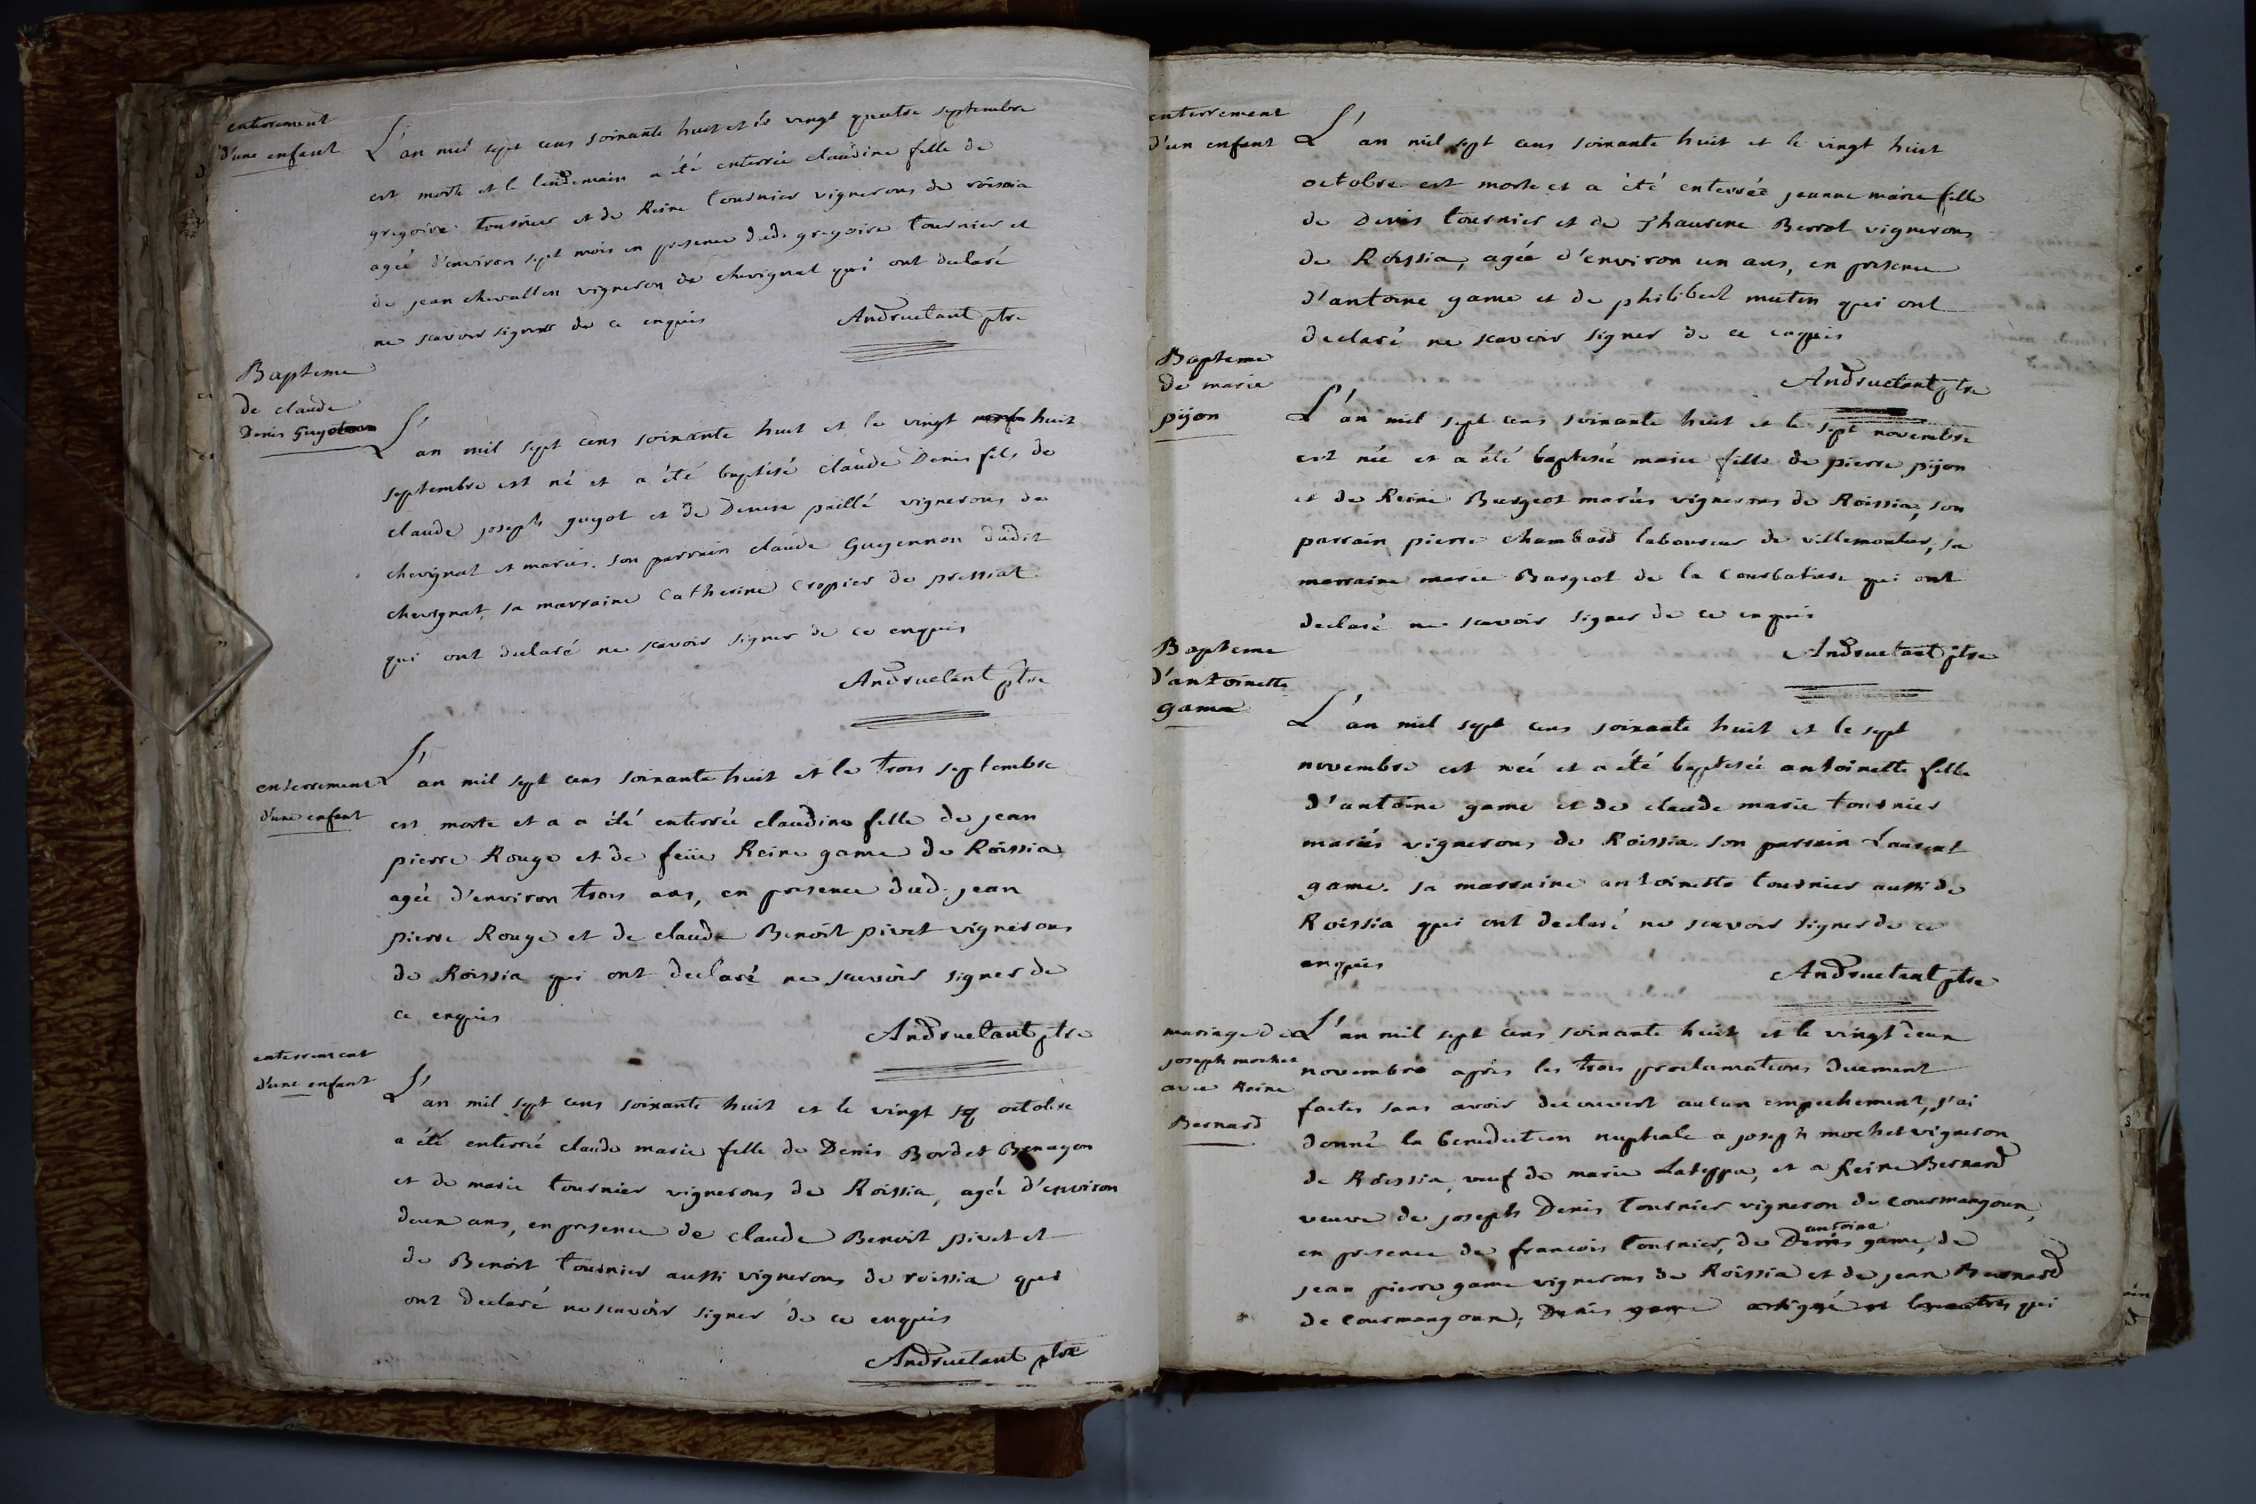 enterrement
d'une enfant
L'an mil sept cens soixante huit et le vingt quatre septembre
est morte et le lendemain a été enterrée claudine fille de
gregoire tournier et de Reine tournier vignerons de roissia
agée d'environ sept mois en presence dud. gregoire tournier et
de jean chevallon vigneron de chevignat qui ont declaré
ne scavoir signer de ce enquis
Andruetant ptre
Bapteme
de claude
Denis Guyot
L'an mil sept cens soixante huit et le vingt huit
septembre est né et a été baptisé claude Denis fils de
claude joseph guyot et de Denise paillé vignerons de
chevignat et mariés. son parrain claude Guyennon dudit
chevignat, sa marraine Catherine Cropier de pressiat
qui ont declaré ne scavoir signer de ce enquis
Andruetant ptre
enterrement
d'une enfant
L'an mil sept cens soixante huit et le trois septembre
est morte et a a été enterrée claudine fille de jean
pierre Rouge et de feüe Reine game de Roissia
agée d'environ trois ans, en presence dud. jean
pierre Rouge et de claude Benoit pivet vignerons
de Roissia qui ont declaré ne scavoir signer de
ce enquis
Andruetant ptre
enterrement
d'une enfant
L'an mil sept cens soixante huit et le vingt octobre
a été enterrée claude marie fille de Denis Bordet Benagon
et de marie tournier vignerons de Roissia, agée d'environ
deux ans, en presence de claude Benoit pivet et
de Benoit tournier aussi vignerons de roissia qui
ont declaré ne scavoir signer de ce enquis
Andruetant ptre
enterrement
d'un enfant
L'an mil sept cens soixante huit et le vingt huit
octobre est morte et a été enterrée jeanne marie fille
de Denis tournier et de Berrot vignerons
de Roissia, agée d'environ un ans, en presence
d'antoine game et de philibert mutin qui ont
declaré ne scavoir signer de ce enquis
Andruetant ptre
Bapteme
de marie
pijon
L'an mil sept cens soixante huit et le sept novembre
est née et a été baptisée marie fille de pierre pijon
et de Reine Burgeot mariés vignerons de Roissia, son
parrain pierre chambard laboureur de villemontar, sa
marraine marie Burgeot de la Courbature qui ont
declaré ne scavoir signer de ce enquis
Andruetant ptre
Bapteme
d'antoinette
game
L'an mil sept cens soixante huit et le sept
novembre est née et a été baptisée antoinette fille
d'antoine game et de claude marie tournier
mariés vignerons de Roissia. son parrain Laurent
game. sa marraine antoinette tournier aussi de
Roissia qui ont declaré ne scavoir signer de ce
enquis
Andruetant ptre
mariage de
joseph mochet
avec Reine
Bernard
L'an mil sept cens soixante huit et le vingt deux
novembre après les trois proclamations duement
faites sans avoir decouvert aucun empechement, j'ai
donné la benediction nuptiale a joseph mochet vigneron
de Roissia, veuf de marie Lateppe, et a Reine Bernard
veuve de joseph Denis tournier vigneron de Courmangoux,
en presence de francois tournier, de antoine game, de
jean pierre game vignerons de Roissia et de jean Bernard
de Courmangoux, Denis game qui